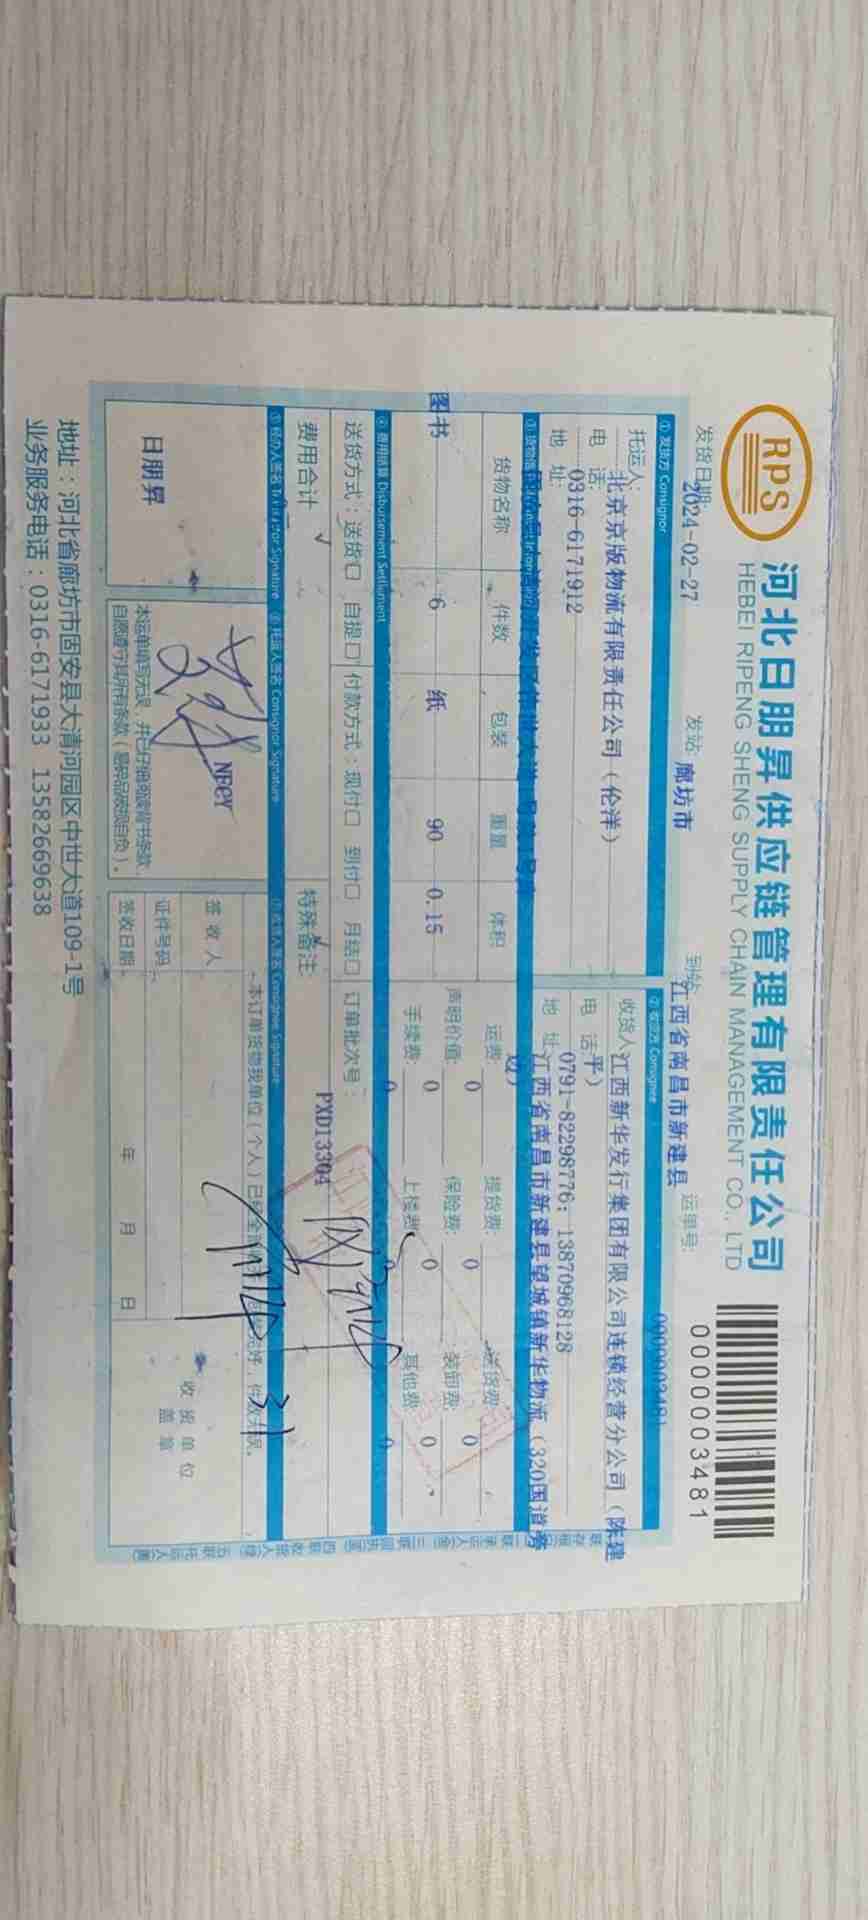 RPS
河北日朋昇供应链管理有限责任公司
HEBEI RIPENG SHENG SUPPLY CHAIN MANAGEMENT CO., LTD
0000003481
发货日期: 2024-02-27 发站: 廊坊市 到站: 江西省南昌市新建县 运单号: 0000003481
① 发货方 Consignor
托运人: 北京京版物流有限责任公司（伦洋）
电 话: 0316-6171912
地 址:
② 收货方 Consignee
收货人: 江西新华发行集团有限公司连锁经营分公司（陈建平）
电 话: 0791-82298776; 13870968128
地 址: 江西省南昌市新建县望城镇新华物流（320国道旁边）
货物名称 件数 包装 重量 体积
图书 6 纸 90 0.15
运费: 0 提货费: 0 送货费: 0
声明价值: 0 保险费: 0 装卸费: 0
手续费: 0 上楼费: 0 其他费: 0
④ 费用结算 Disbursement Settlument
送货方式：送货□ 自提□ 付款方式：现付□ 到付□ 月结□ 订单批次号：
PXD13304
费用合计 特殊备注
⑤ 经办人签名 Signature ⑥ 托运人签名 Consignor Signature ⑦ 收货人签名 Consignee Signature
日朋昇
本运单填写无误，并已仔细阅读背书条款，
自愿遵守其所有条款（易碎品破损自负）。
本订单货物我单位（个人）已经全部
签 收 人
证件号码
签收日期 年 月 日
收 货 单 位
盖 章
地址：河北省廊坊市固安县大清河园区中世大道109-1号
业务服务电话：0316-6171933 13582669638